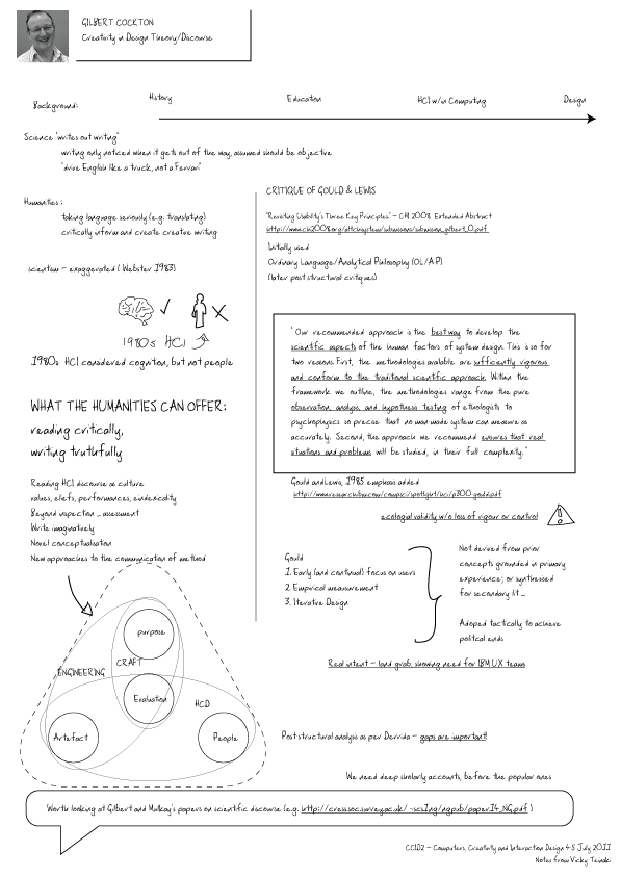 GILBERT COCKTON
Creativity in Design Theory/Discourse
Background:
History
Education
HCI w/in Computing
Design
Science "writes out writing"
writing only noticed when it gets out of the way, assumed should be objective
"drive English like a truck, not a Ferrari"
Humanities:
taking language seriously (e.g. translating)
critically inform and create creative writing
scientism - exaggerated (Webster 1983)
1980s HCI
1980s HCI considered cognition, but not people
WHAT THE HUMANITIES CAN OFFER:
reading critically,
writing truthfully
Reading HCI discourse as culture
values, eliefs, performances, eindexicality
Beyond inspection ... assessment
Write imaginatively
Novel conceptualisation
New approaches to the communication of method
purpose
ENGINEERING
CRAFT
Evaluation
HCD
Artefact
People
CRITIQUE OF GOULD & LEWIS
"Revisiting Usability's Three Key Principles" - CHI 2008 Extended Abstract
Initially used
Ordinary Language/Analytical Philosophy (OL/AP)
(later post structural critiques)
"Our recommended approach is the best way to develop the
scientific aspects of the human factors of system design. This is so for
two reasons. First, the methodologies available are sufficiently rigorous
and conform to the traditional scientific approach. Within the
framework we outline, the methodologies range from the pure
observation, analysis, and hypothesis testing of ethologists to
psychophysics so precise that no man-made system can measure as
accurately. Second, the approach we recommend ensures that real
situations and problems will be studied, in their full complexity."
Gould and Lewis, 1985 emphasis added
ecological validity w/o loss of rigour or control
Gould
1. Early (and continual) focus on users
2. Empirical measurement
3. Iterative Design
Not derived from prior
concepts grounded in primary
experience; or synthesised
for secondary lit ...
Adopted tactically to achieve
political ends
Real intent - land grab, showing need for IBM UX teams
Post-structural analysis as per Derrida - gaps are important!
We need deep scholarly accounts, before the popular ones
Worth looking at Gilbert and Mulkay's papers on scientific discourse (e.g. )
CCID2 - Computers, Creativity and Interaction Design 4-5 July 2011
Notes from Vicky Teinaki